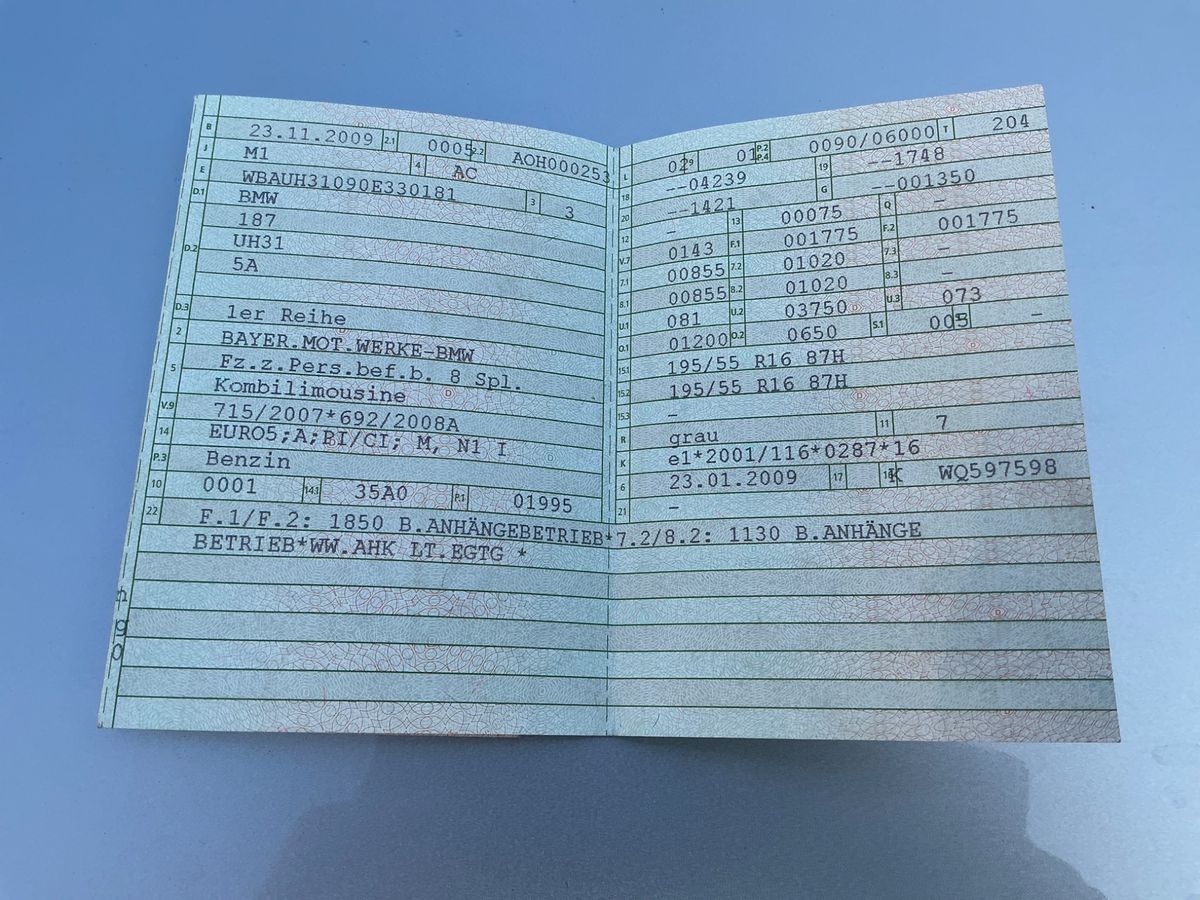 B 23.11.2009 2.1 0005 2.2 AOH000253
J M1 4 AC
E WBAUH31090E330181 3 3
D.1 BMW
187
D.2 UH31
5A
D.3 1er Reihe
2 BAYER.MOT.WERKE-BMW
5 Fz.z.Pers.bef.b. 8 Spl.
Kombilimousine
V.9 715/2007*692/2008A
14 EURO5;A;PI/CI; M, N1 I
P.3 Benzin
10 0001 14.1 35A0 P.1 01995
L 02 9 01 P.2 P.4 0090/06000 T 204
18 --04239 19 --1748
20 --1421 G --001350
12 - 13 00075 Q -
V.7 0143 F.1 001775 F.2 001775
7.1 00855 7.2 01020 7.3 -
8.1 00855 8.2 01020 8.3 -
U.1 081 U.2 03750 U.3 073
O.1 01200 O.2 0650 S.1 005 -
15.1 195/55 R16 87H
15.2 195/55 R16 87H
15.3 -
R grau 11 7
K e1*2001/116*0287*16
6 23.01.2009 17 K 16 WQ597598
21 -
22 F.1/F.2: 1850 B.ANHÄNGEBETRIEB*7.2/8.2: 1130 B.ANHÄNGE
BETRIEB*WW.AHK LT.EGTG *